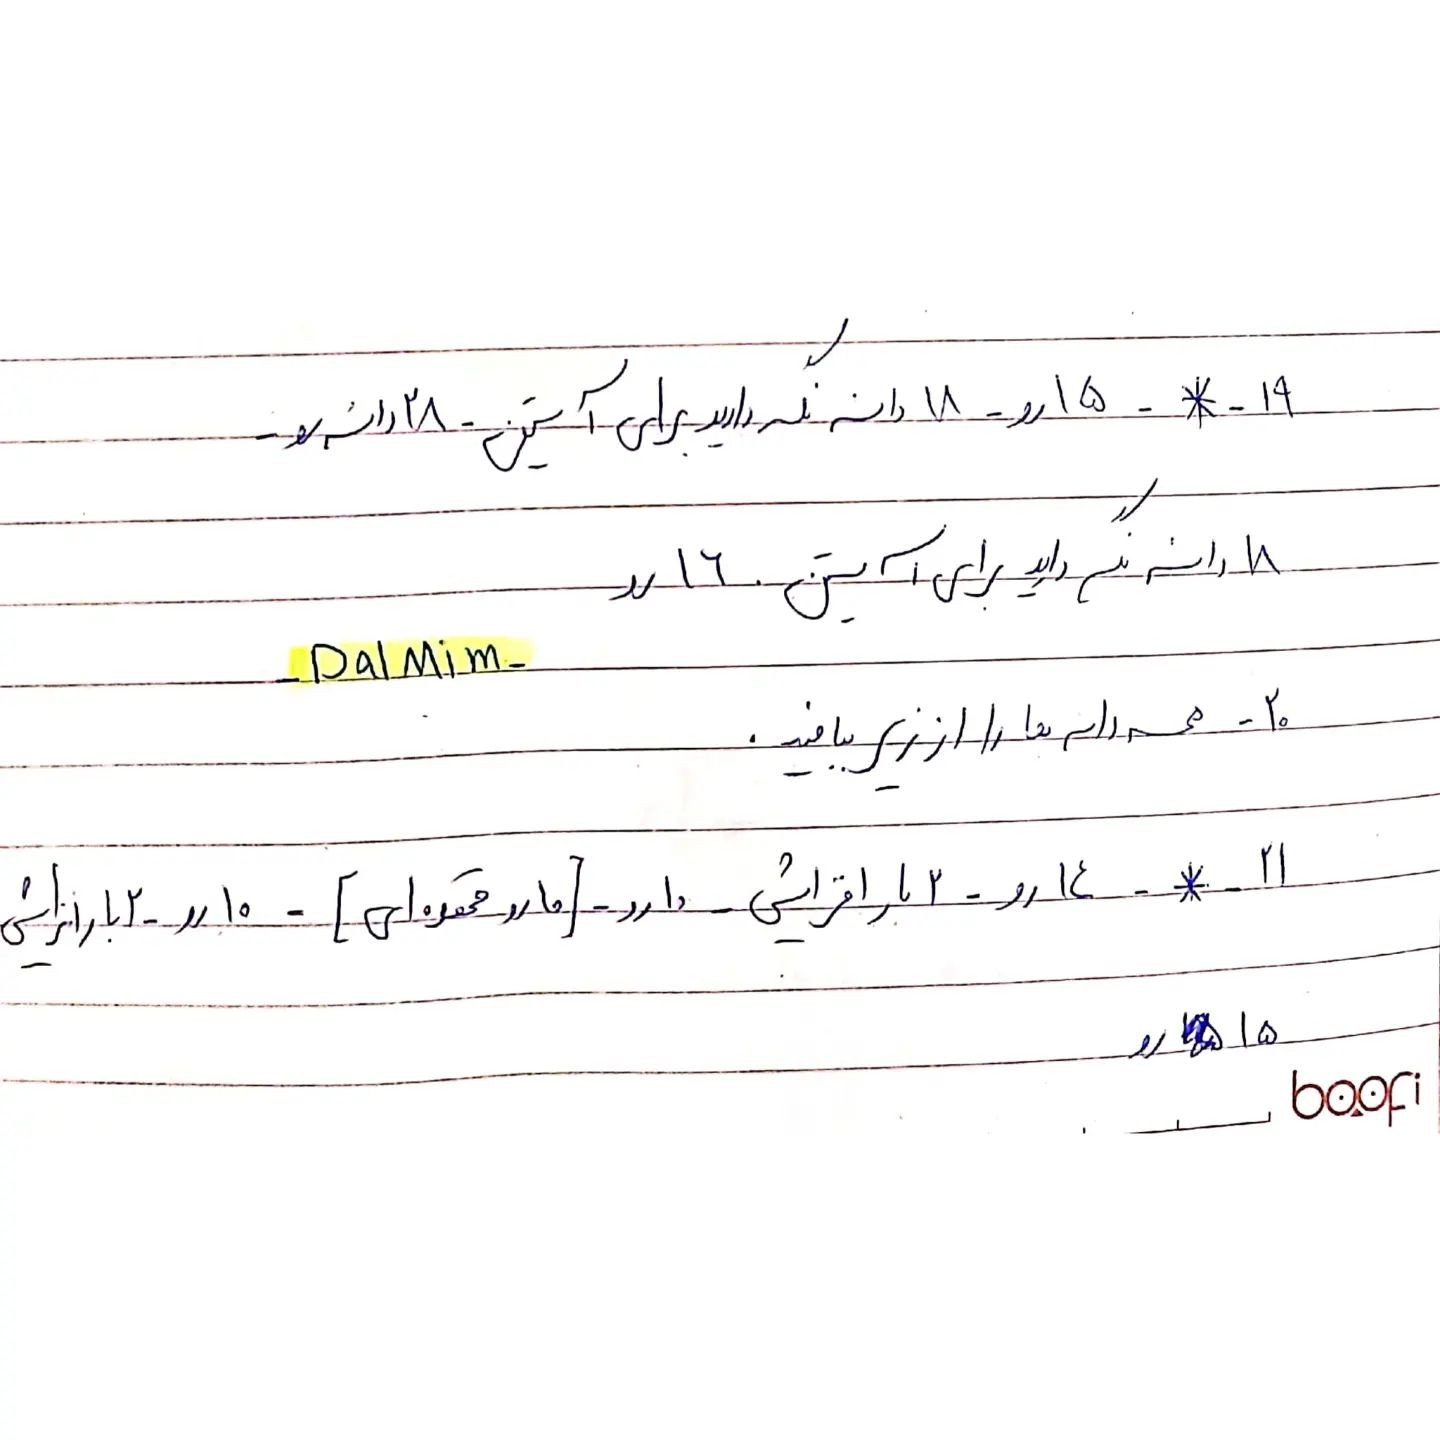 ۱۹ - * - ۱۵ رو - ۱۸ دانه نگه دارید برای آستین - ۲۸ دانه رو -
۱۸ دانه نگه دارید برای آستین . ۱٦ رو
- DalMim -
۲۰ - همه دانه ها را از زیر ببافید .
۲۱ - * - ۱٤ رو - ۲ بار افزایش - ۱۰ رو - [ ۱۰ رو محقوه ای ] - ۱۰ رو - ۲ بار افزایش
۱۵ رو
boofi